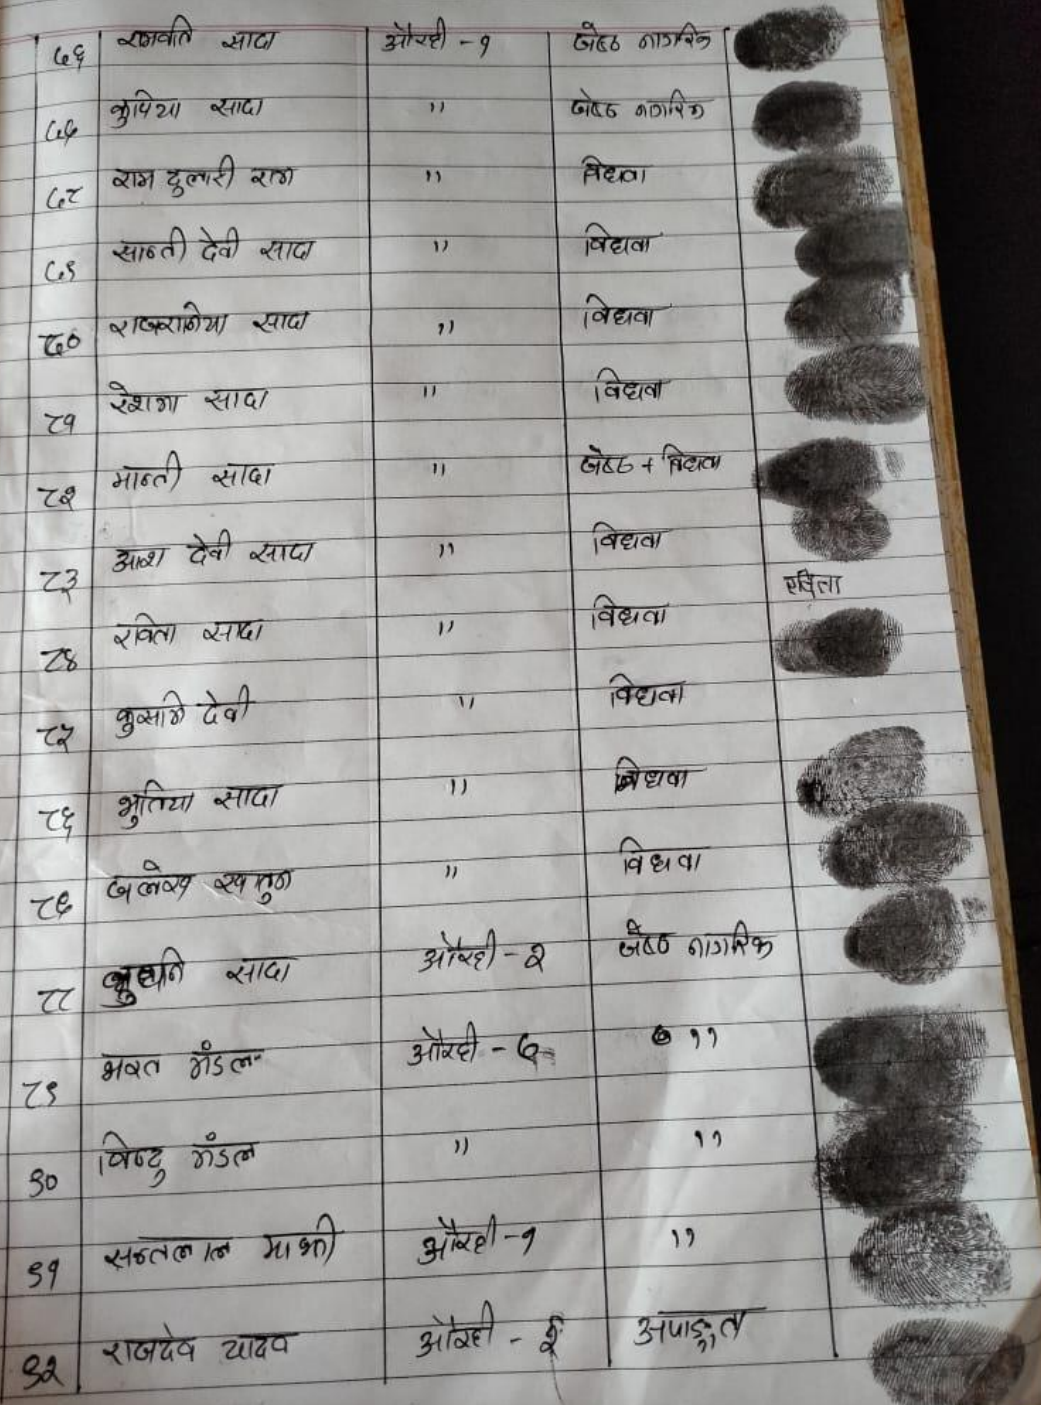 ७६ रामवति सादा औरही - १ जेष्ठ नागरिक
७७ कुपिया सादा " जेष्ठ नागरिक
७८ राम दुलारी राम " विधवा
७९ सान्ती देवी सादा " विधवा
८० सादा " विधवा
८१ रेशमा सादा " विधवा
८२ मान्ती सादा " जेष्ठ + विधवा
८३ आशा देवी सादा " विधवा
८४ रविता सादा " विधवा रविता
८५ देवी " विधवा
८६ भुतिया सादा " विधवा
८७ " विधवा
८८ बुधनि सादा औरही - २ जेष्ठ नागरिक
८९ भरत मंडल औरही - ७ "
९० विन्दु मंडल " "
९१ सन्तलाल माझी औरही - १ "
९२ राजदेव यादव औरही - अपाङ्गता